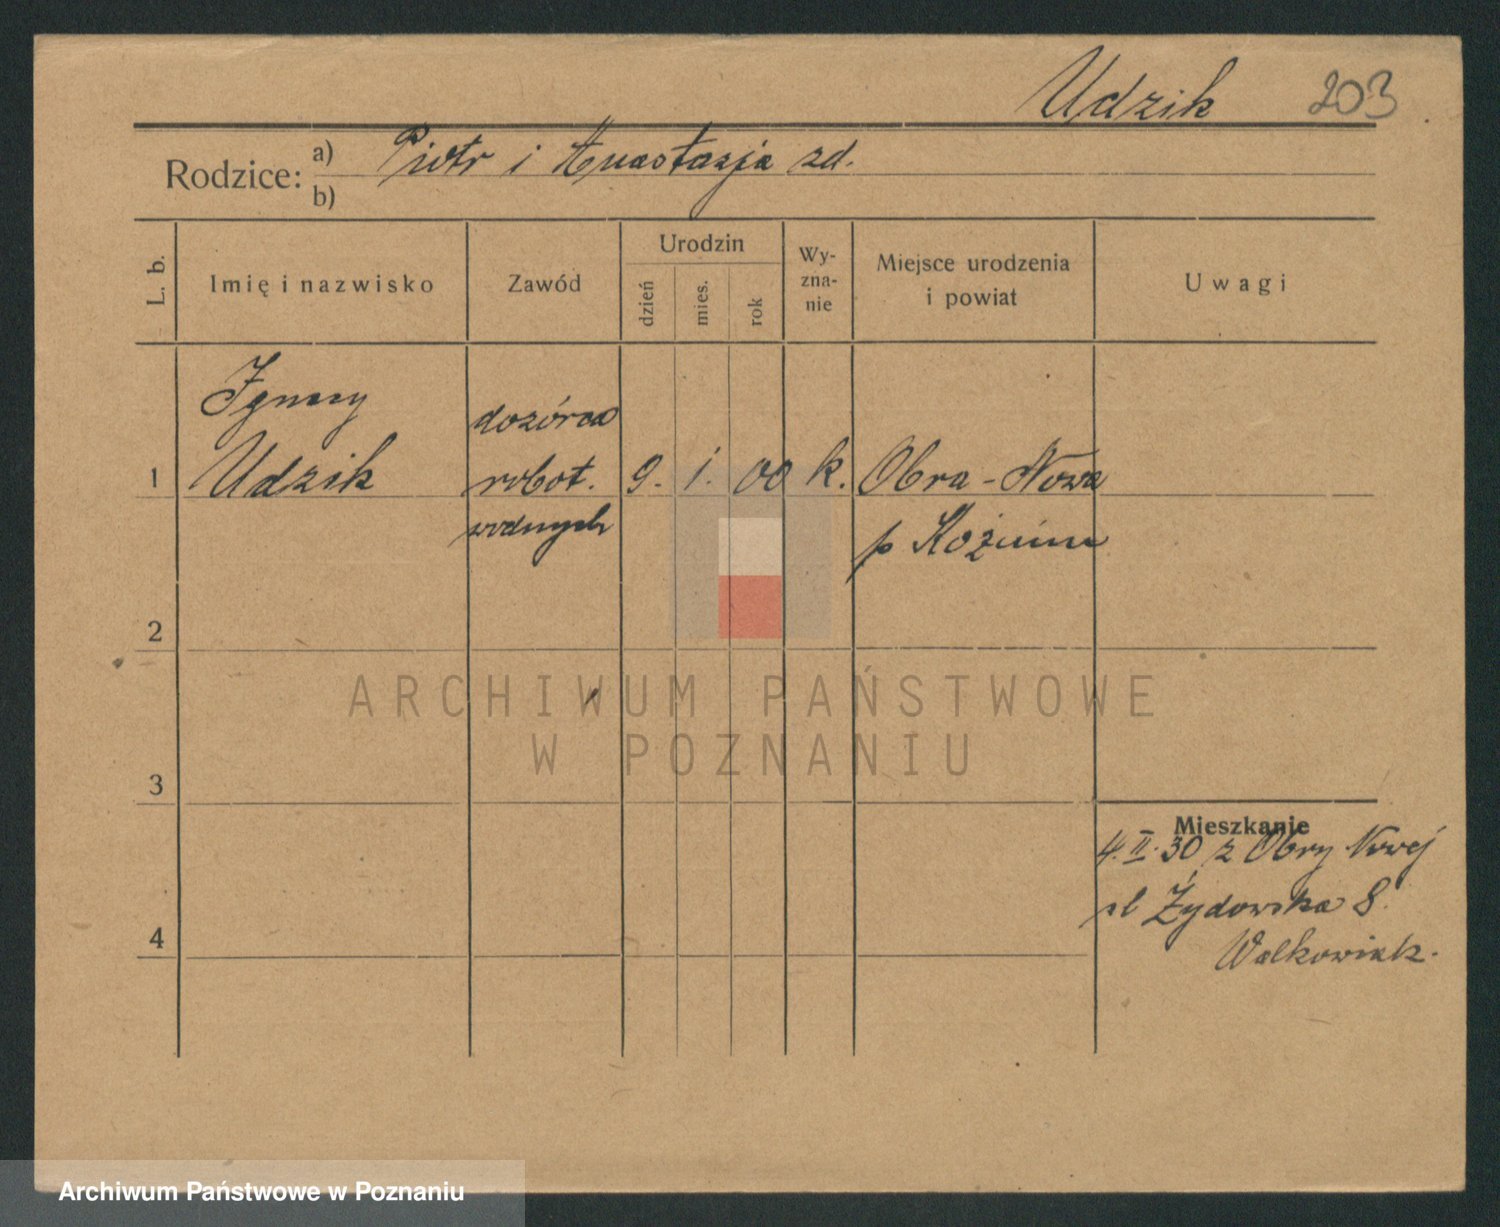 Udzik 203
Rodzice: a) Piotr i Anastazja zd.
b)
L. b. Imię i nazwisko Zawód Urodzin dzień mies. rok Wy-zna-nie Miejsce urodzenia i powiat Uwagi
Ignacy dozórca
1 Udzik robot. 9. 1. 00 k. Obra-Nowa
wodnych p Koźmin
2
ARCHIWUM PAŃSTWOWE
W POZNANIU
3
Mieszkanie
4.II.30 z Obry Nowej
ul Żydowska 8.
4 Walkowiak.
Archiwum Państwowe w Poznaniu